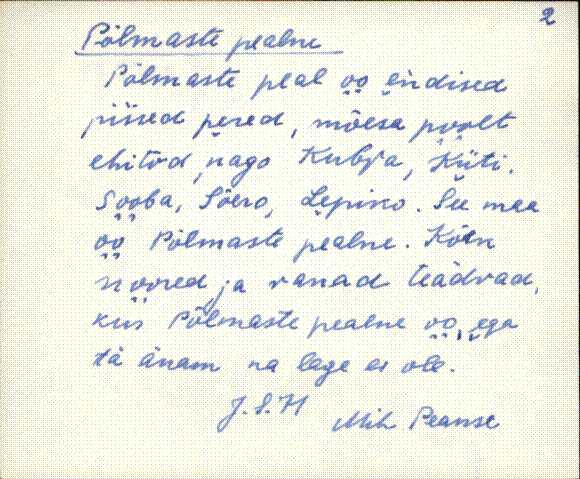 2
Põlmaste pealne
Põlmaste peal oo endised
piised pered, mõesa poolt
ehitød, nago Kubja, Küti,
Sooba, Sõero, Lepino. See maa
oo Põlmaste pealne. Kõen
noored ja vanad teädvad,
kus Põlmaste pealne oo, ega
tä änam na lage ei ole.
J. S. H
Mih Peanse